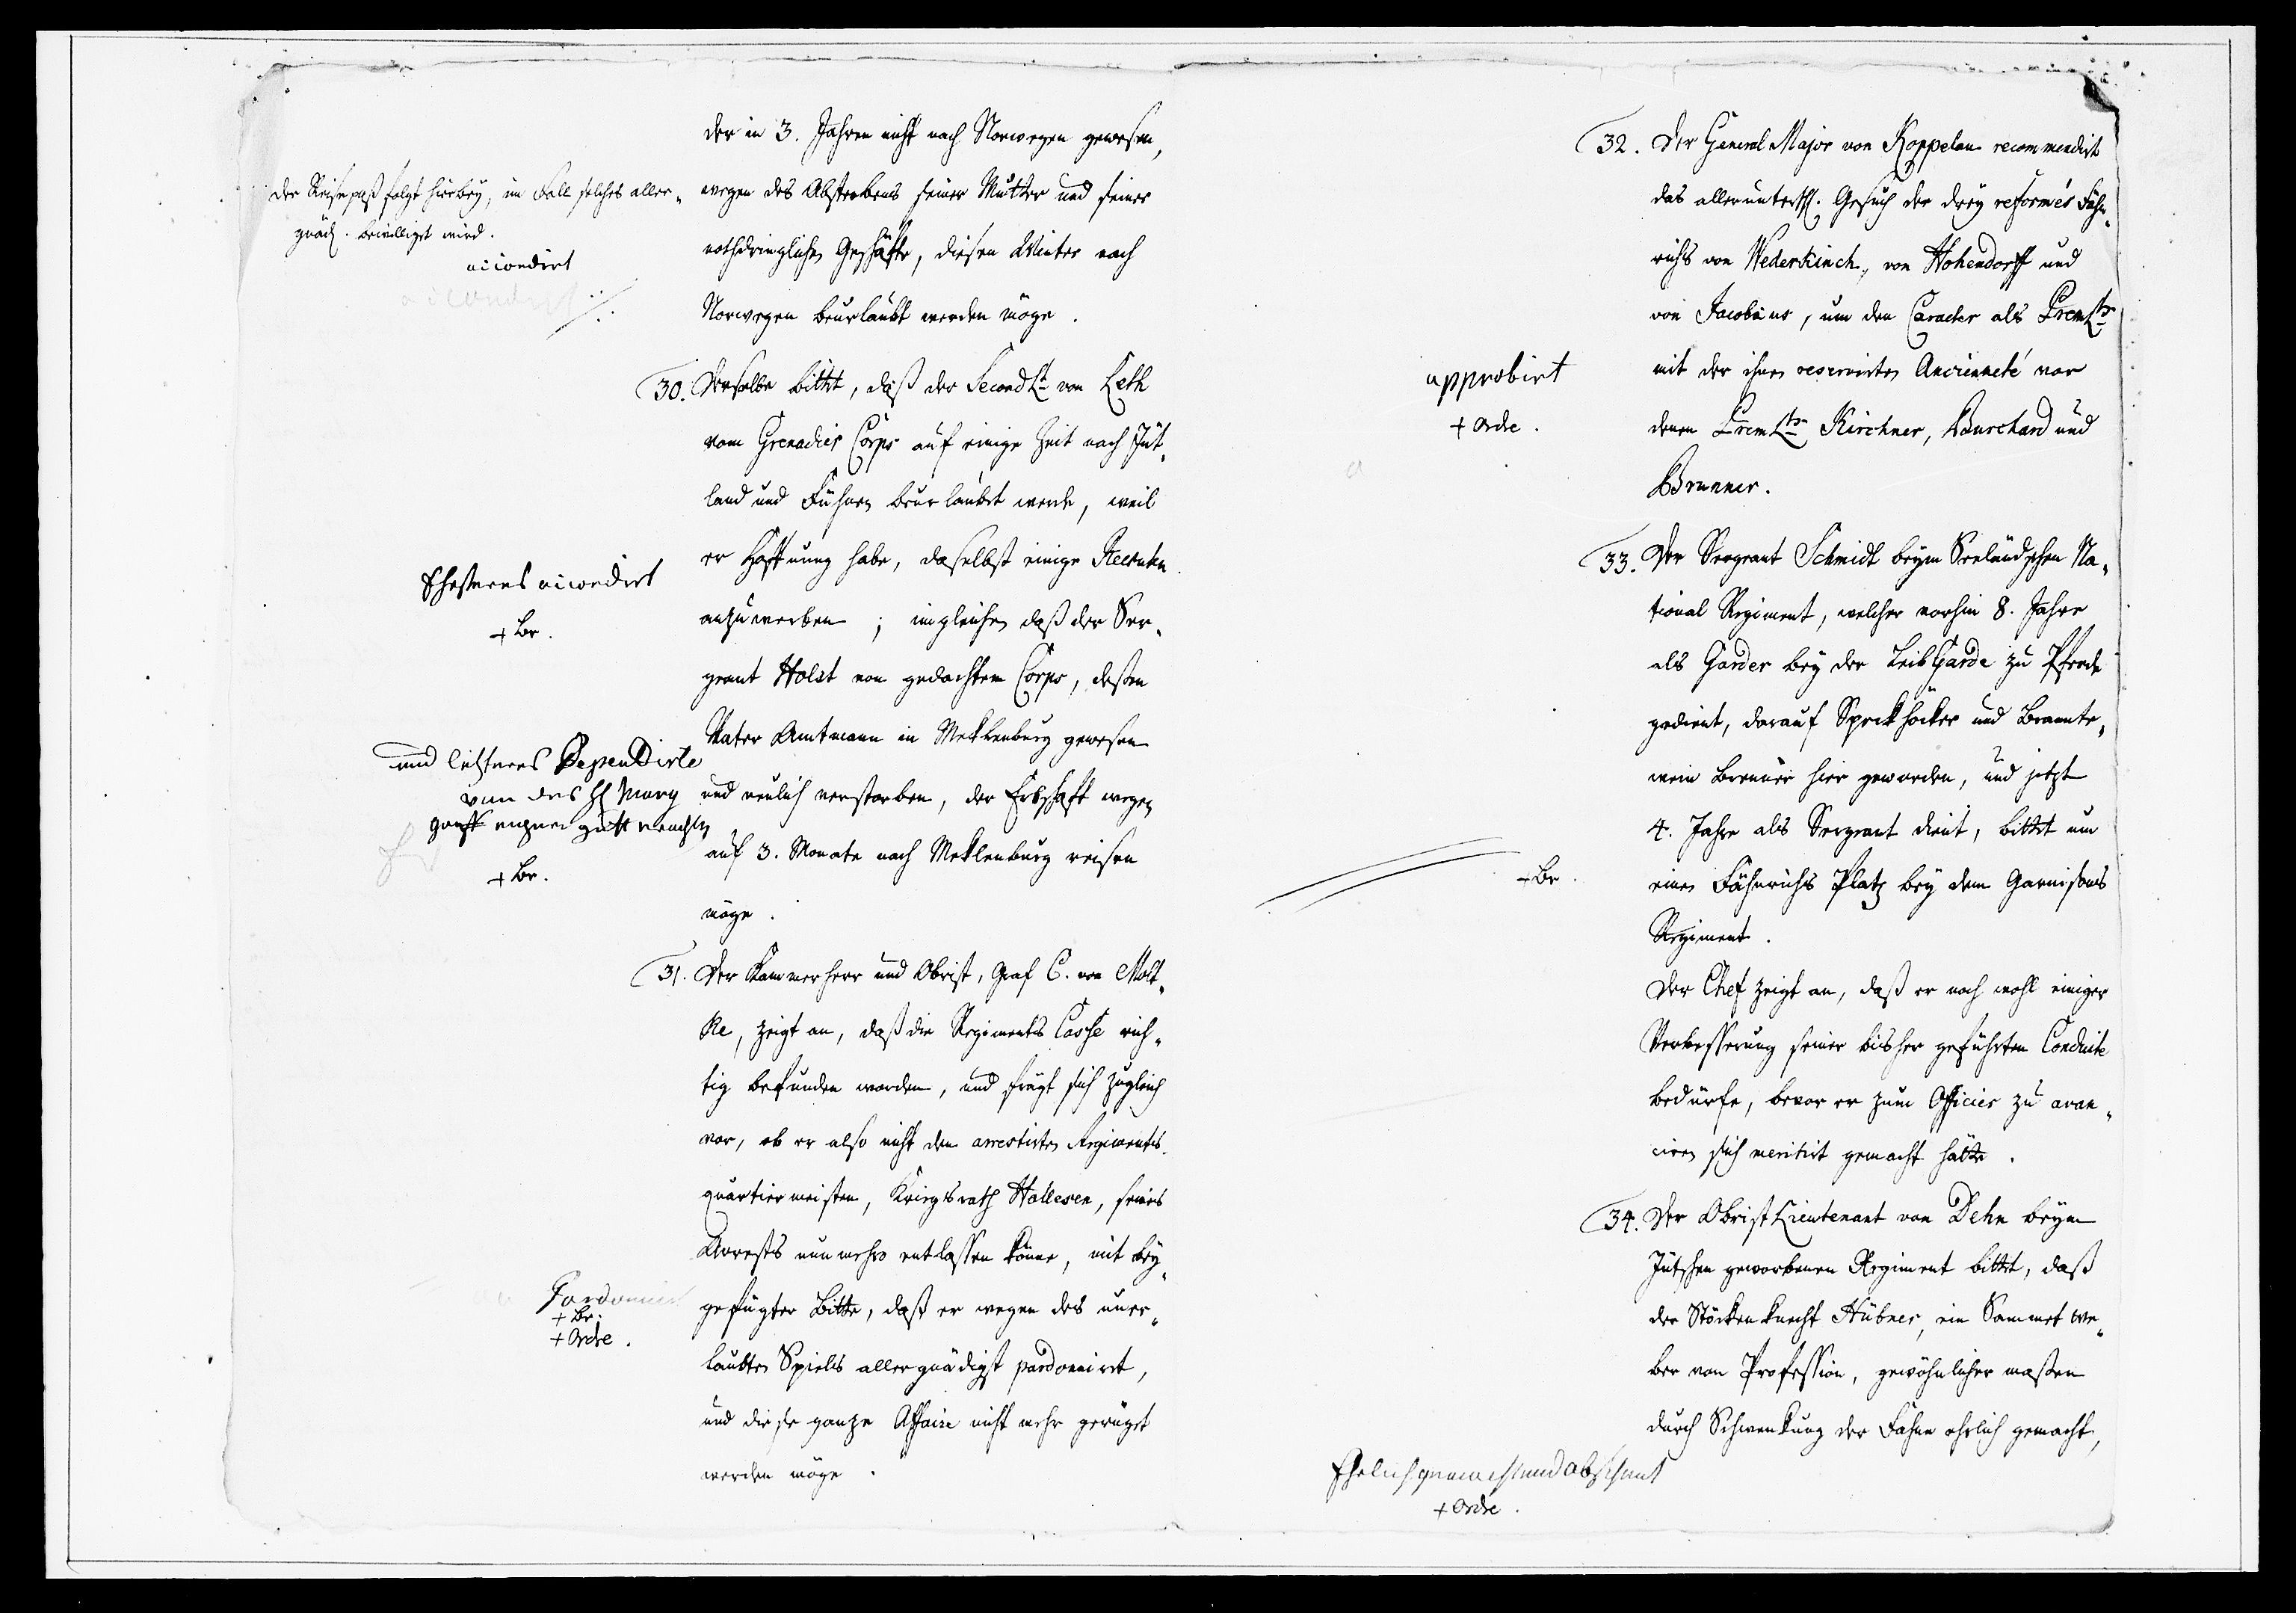 der in 3. Jahren nicht nach Norwegen gewesen,
wegen des Absterbens seiner Mutter und seiner
nothdringlichen Geschäfte, diesen Winter nach
Norwegen beurlaubt werden möge.
Der Reisepaß folgt hierbey, im Fall solches aller-
gnäd. bewilliget wird.
accordirt
30. Derselbe bittet, daß der SecondLt von Leth
vom Grenadier Corps auf einige Zeit nach Jüt-
land und Fühnen beurlaubet werde, weil
er Hoffnung habe, daselbst einige Recruten
anzuwerben; imgleichen daß der Ser-
geant Holst von gedachtem Corps, deßen
Vater Amtmann in Meklenburg gewesen
und neulich verstorben, der Erbschaft wegen
auf 3. Monate nach Meklenburg reisen
möge.
Ersteres accordirt
+ Br.
und letzteres Dependirte
von des
+ Br.
31. Der Kammerherr und Obrist, Graf C. von Molt-
ke, zeigt an, daß die Regiments Casse rich-
tig befunden worden, und frägt sich zugleich
vor, ob er also nicht den arrestirten Regiments-
quartiermeister, Kriegsrath Hallesen, seines
Arrests nunmehro entlassen könne, mit bey-
gefügter Bitte, daß er wegen des uner-
laubten Spiels allergnädigst pardonnirt,
und diese ganze Affaire nicht mehr gerüget
werden möge.
Pardonnirt
+ Br.
+ Ordre.
32. Der General Major von Koppelau recommendirt
das allerunterth. Gesuch der drey reformés Fähn-
richs von Wederkinch, von Hohendorff und
von Jacobäus, um den Caracter als PremLts
mit der ihnen reservirten Ancienneté vor
denen PremLts Kirchner, Burchard und
Brunner.
approbirt
+ Ordre.
33. Der Sergeant Schmidt beym Seeländschen Na-
tional Regiment, welcher vorhin 8. Jahre
als Garder bey der Leib Garde zu Pferde
gedient, darauf Speckhöcker und Brannte-
wein Brenner hier geworden, und jetzt
4. Jahre als Sergeant dient, bittet um
einen Fähnrichs Platz bey dem Garnisons
Regiment.
+ Br.
Der Chef zeigt an, daß er noch wohl einiger
Verbesserung seiner bisher geführten Conduite
bedürfe, bevor er zum Officier zu avan-
ciren sich meritirt gemacht hätte.
34. Der ObristLieutenant von Dehn beym
Jütschen geworbenen Regiment bittet, daß
der Stöckenknecht Hübner, ein Sammet We-
ber von Profession, gewöhnlicher maßen
durch Schwenkung der Fahne ehrlich gemacht,
Ehrlich gemacht und abschied
+ Ordre.